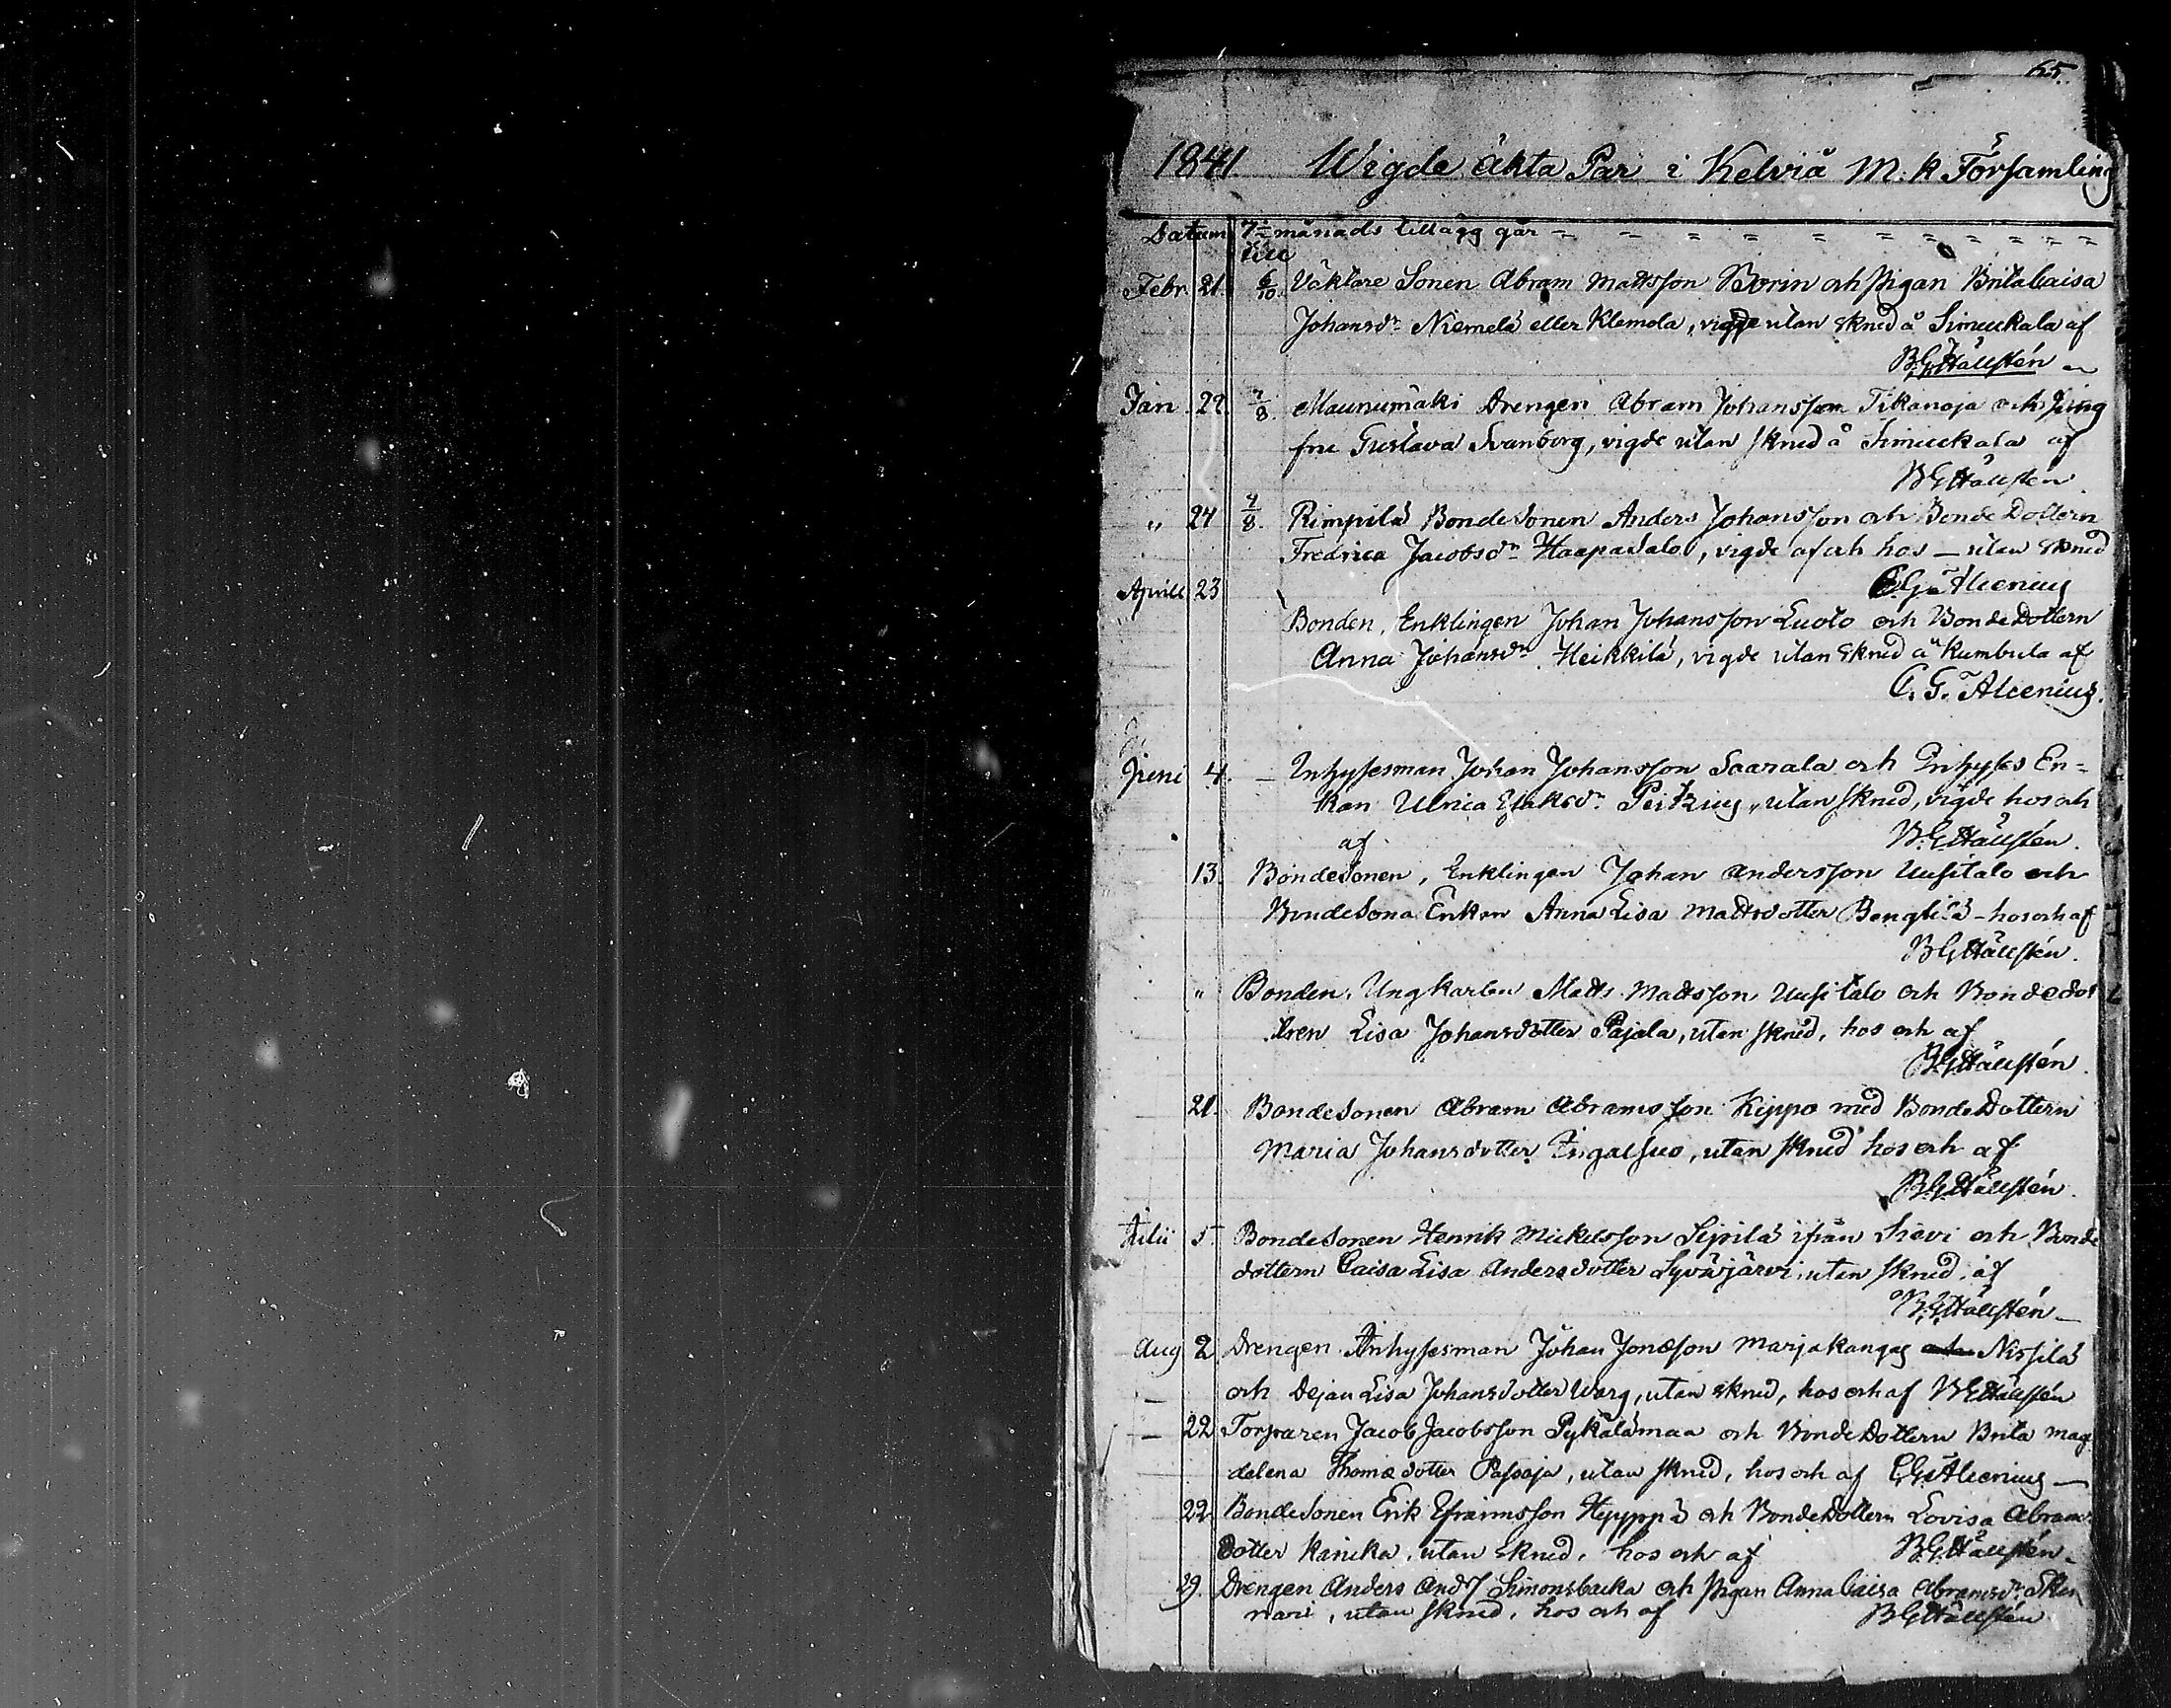 65.
1841. Wigde äkta Par i Kelviå M. k Församling
Datum 7 månads tillägg går
till
Febr. 21. 6/10. Väktare Sonen Abram Mattsson Borin och Pigan Brita Caisa
Johansdr Niemelä eller Klemola, vigde utan skned å Simuckala af
B.G. Hällstén
Jan 22. 7/8 Maunumäki Drengen Abram Johansson Tikanoja och Jung
fru Gustava Svanborg, vigde utan skned å Simuckala af
B G Hällstén
" 24 7/8. Rimpilä BondeSonen Anders Johansson och Bonde Dottern
Fredrica Jacobsdr Haapasalo, vigde af och hos — utan skned
C.G. Alcenius
Aprill 23
Bonden, Enklingen Johan Johansson Luoto och BondeDottern
Anna Johansdr Heikkilä, vigde utan skned å Kumbula af
C. G. Alcenius.
Juni 4. — Inhysesman Johan Johansson Saarala och Inhyses En=
kan Ulrica Isaksdr Peitzius, utan skned, vigde hos och
af B.G. Hällstén.
13. BondeSonen, Enklingen Johan Andersson Uusitalo och
BondeSona Enkan Anna Lisa Mattsdotter Bengtilä - hos och af
B G Hällstén.
" Bonden, Ungkarlen Matts Mattsson Uusitalo och Bondedot
tren Lisa Johansdotter Pajala, utan skned, hos och af
B.G. Hällstén.
21. BondeSonen Abram Abramsson Kippo med BondeDottern
Maria Johansdotter Ingalsuo, utan skned hos och af
B.G. Hällstén.
Julii 5. BondeSonen Henrik Mickelsson Sipilä ifrån Sievi och Bonde
dottern Caisa Lisa Andersdotter Syväjärvi, utan skned, af
B.G. Hällstén —
Aug 2 Drengen Inhysesman Johan Jonæson Marjakangas och Nissilä
— och Dejan Lisa Johansdotter Warg, utan skned, hos och af B G Hällstén
— 22 Torparen Jacob Jacobsson Pykälämaa och BondeDottern Brita Mag
dalena Thomædotter Passoja, utan skned, hos och af C.G. Alcenius —
22. BondeSonen Erik Efraimsson Hyyppä och BondeDottern Lovisa Abrams
dotter Kaneka, utan skned, hos och af B.G. Hällstén.
29. Drengen Anders And. Simonsbacka och Pigan Anna Caisa Abramsdr
nari, utan skned, hos och af B G Hällstén